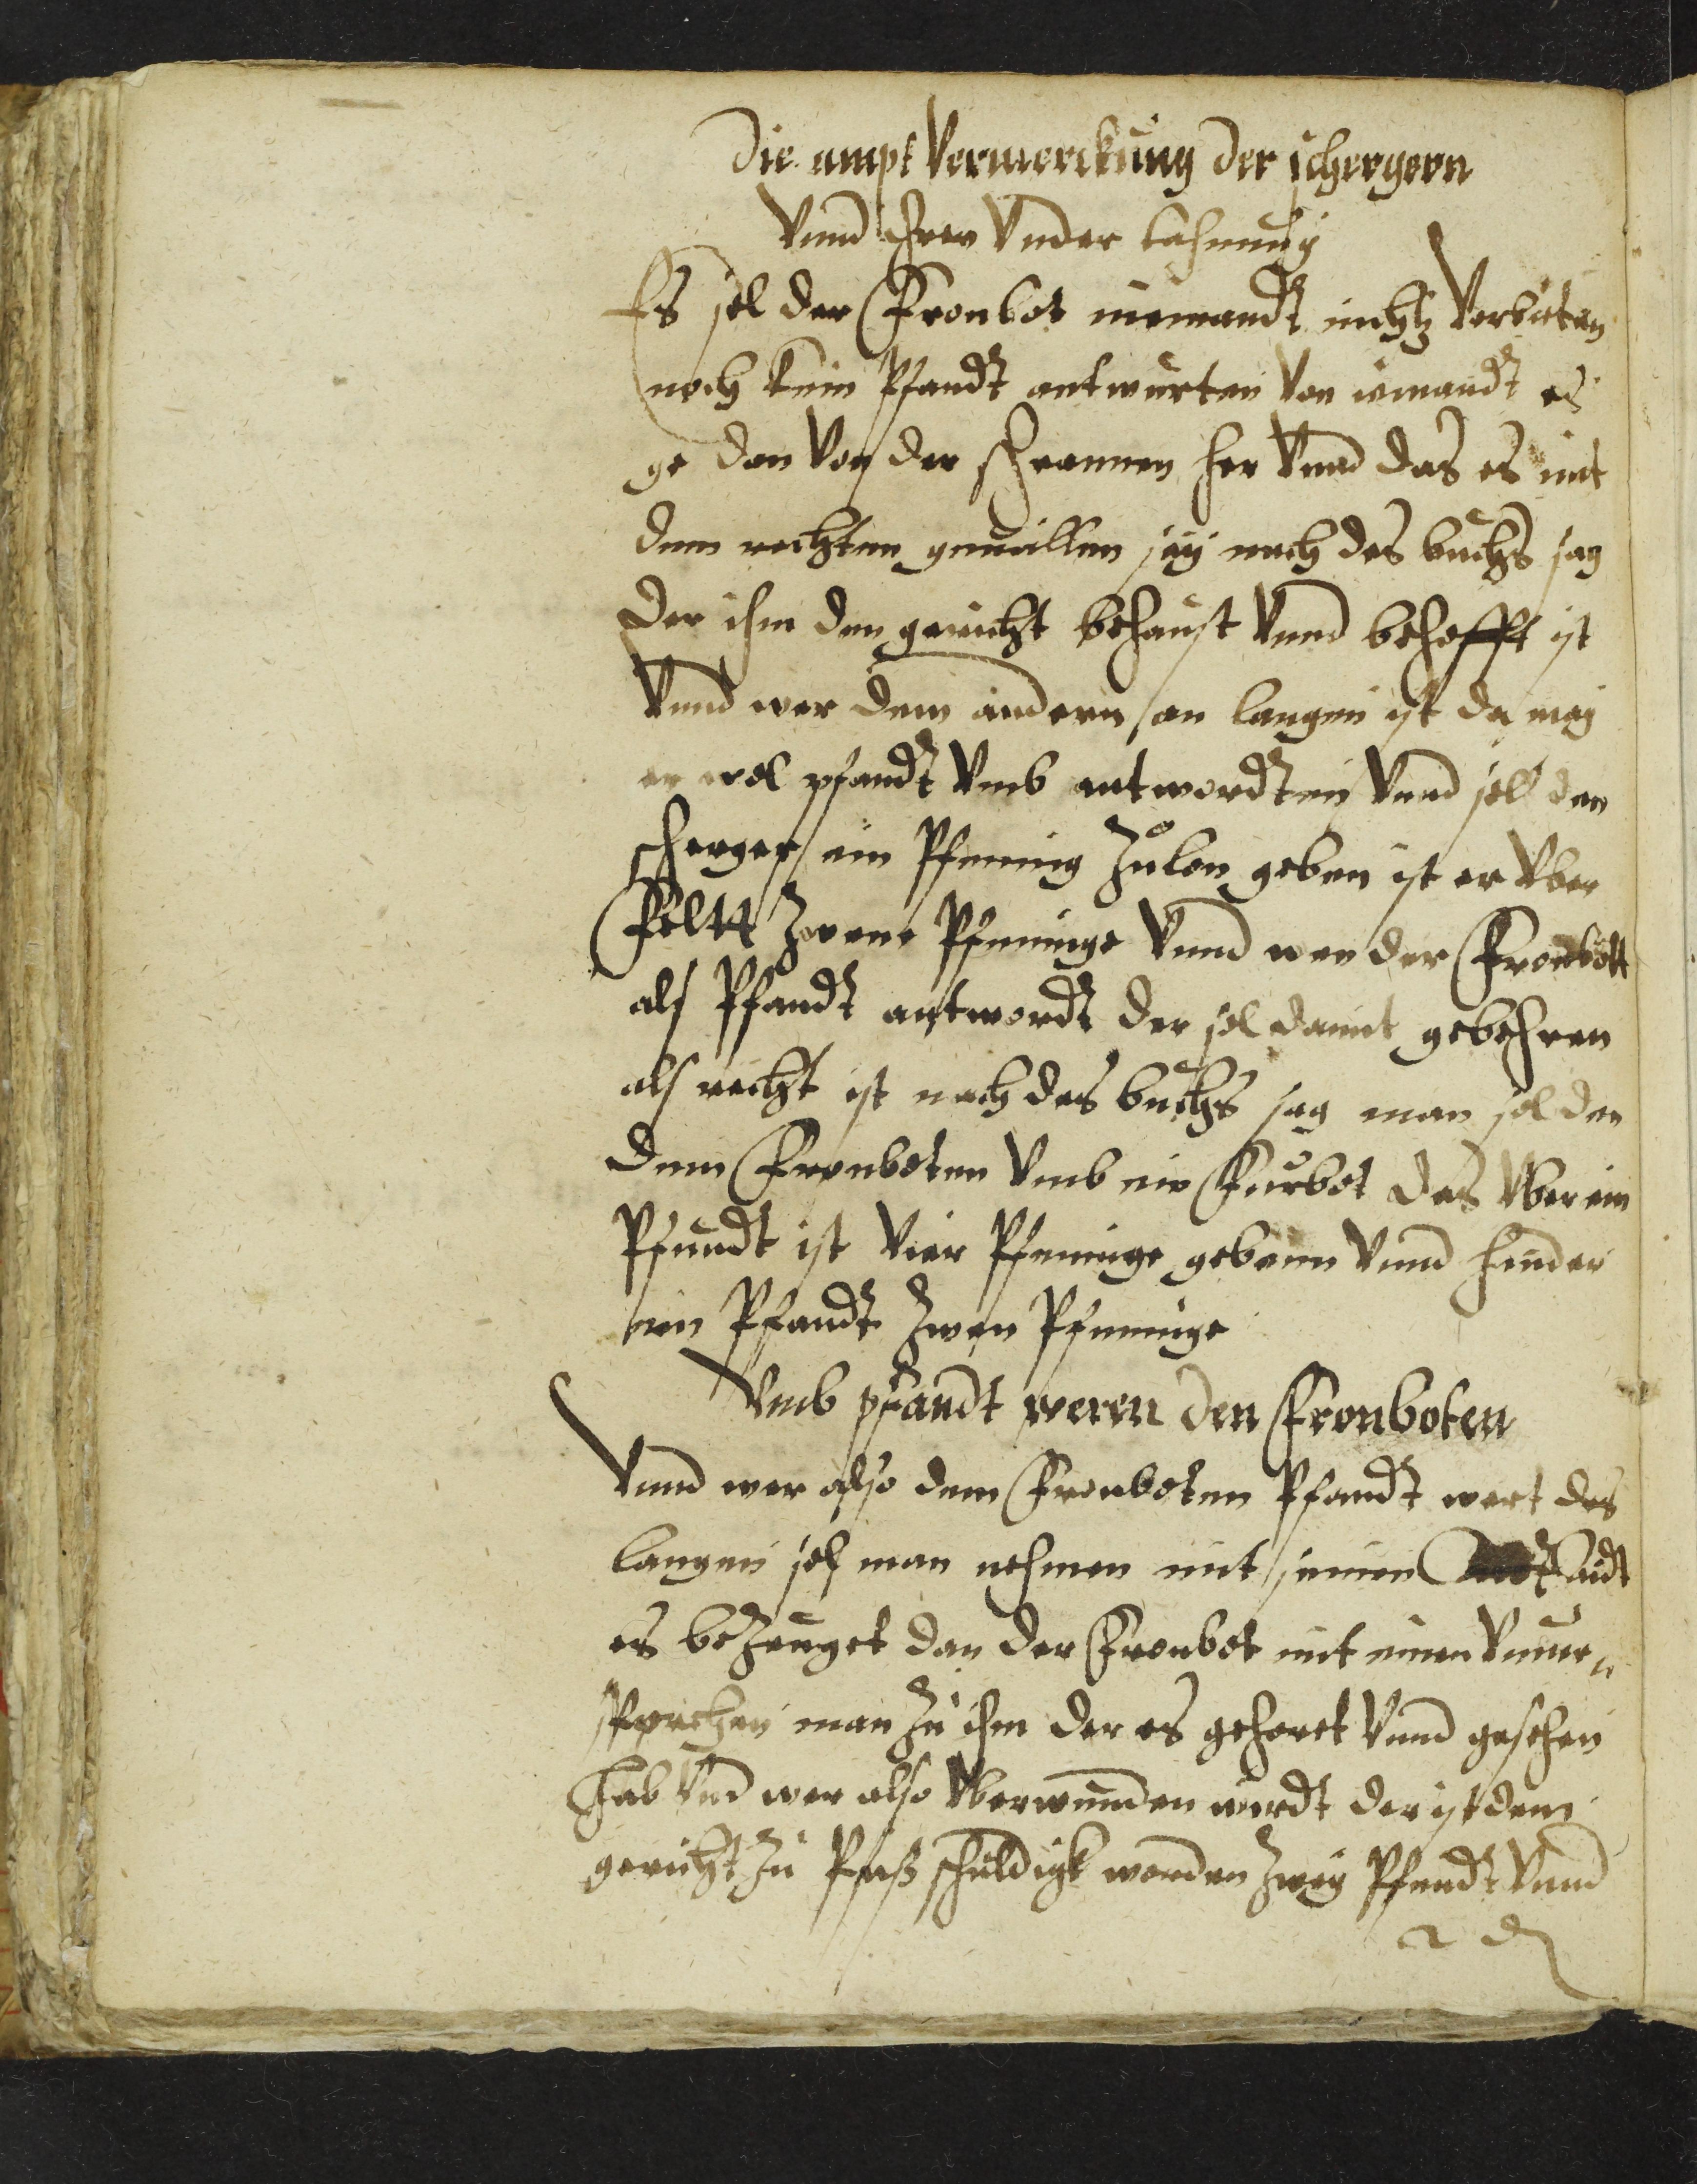 Die ampt Vermerckung der schergern
Vnnd ihrer Vnder tahnnung
Es sol der Fronbot niemandt nichtz Verbieten
noch kein Pfandt antwurten von iemandt es
ge dan von der schrannen her Vnnd das es mit
dem rechten geuallen sey nach des buchs sag
der ihm dem gericht behaust Vnnd behofft ist
Vnnd wer dem andern an laugen ist da mag
er wol pfandt Vmb antwordten Vnnd sol den
schergen ein Pfenning zulon geben ist er vber
Feltt zwene Pfenninge Vnnd wen der Fronbott
als Pfandt antwordt der sol damit gebehren
als recht ist nach des buchs sag man sol den
dem Fronboten Vmb ein Furbot das vber ein
Pfundt ist Vier Pfenninge gebenn Vnnd hinder
ein Pfandt zwen Pfenninge
Vmb pfandt weren den Fronboten
Vnnd wer also dem Fronboten Pfandt wert des
laugen sol man nehmen mit seinen aidt
es bezeuget dan der Fronbot mit einen Vnuer
sprochen man zu ihm der es gehoret Vnnd gesehen
hab Vnd wer also vberwunden wirdt der ist dem
gericht zu schuldigk worden zwey Pfundt Vnnd